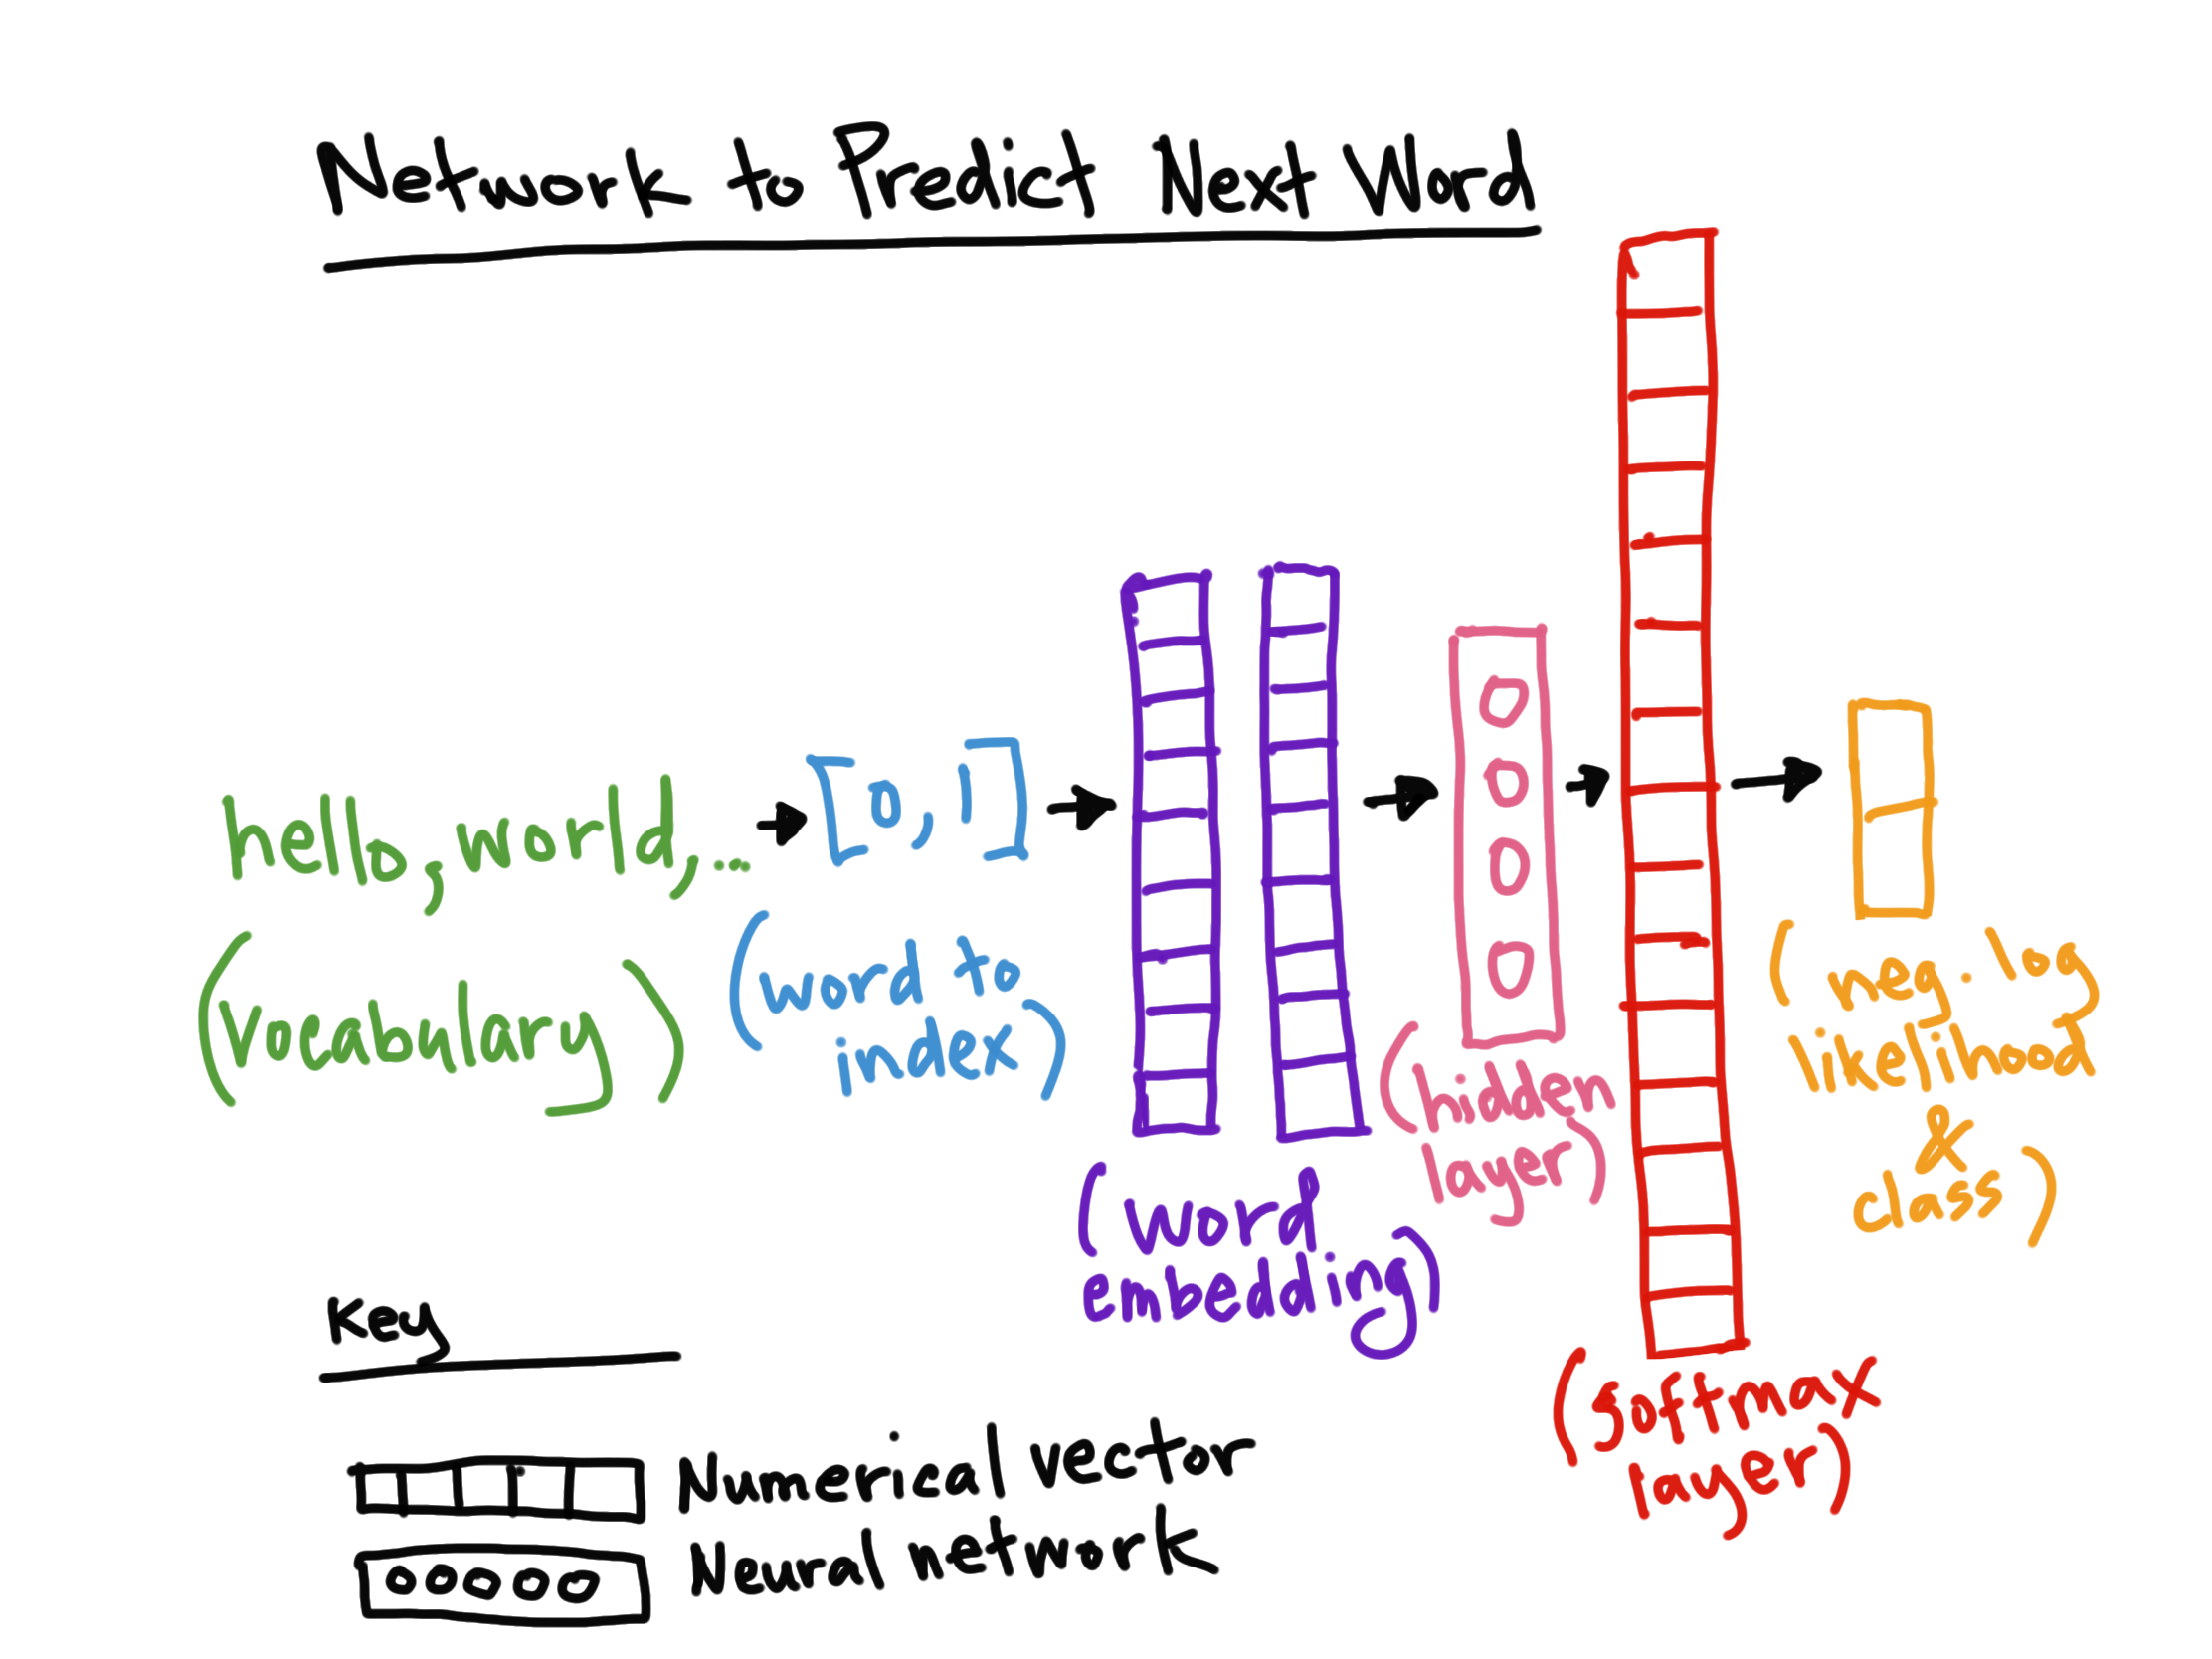 Network to Predict Next Word
hello, world, ...
[0, 1]
(Vocabulary)
(word to
index)
(word
embedding)
(hidden
layer)
(softmax
layer)
(neg. log
likelihood
&
class)
Key
Numerical vector
Neural network